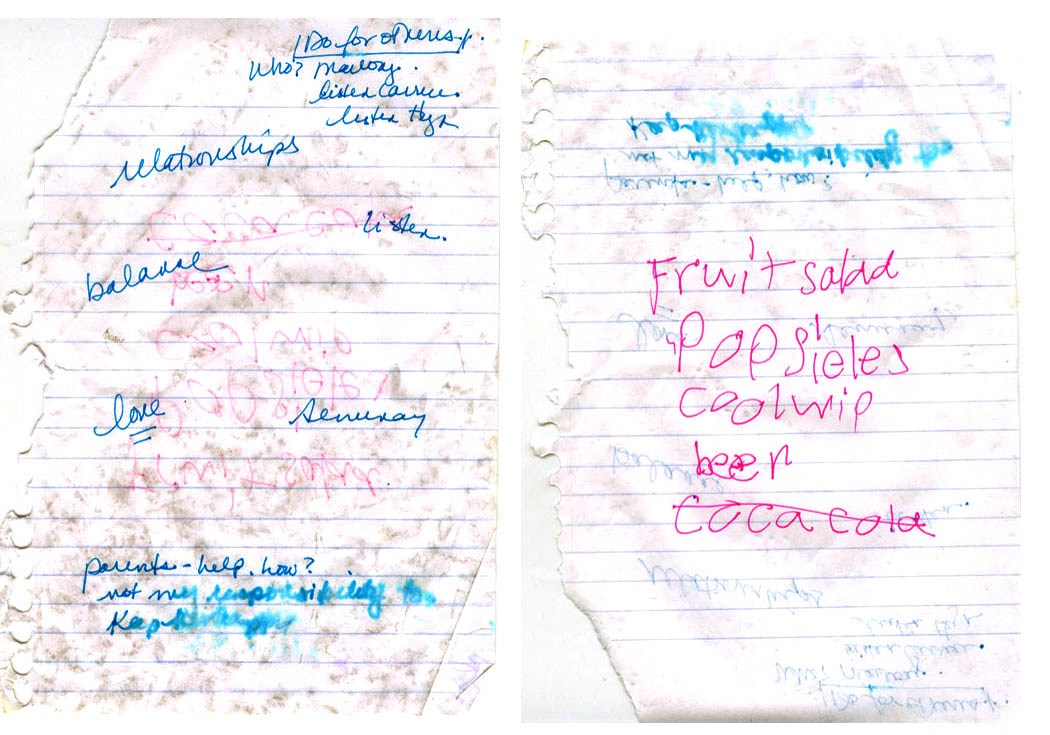 Do for others.
Who?
Listen
listen
relationships
listen.
balance
love
parents - help. how?
not my responsibility to
Keep
Fruit salad
Popsieles
coolwip
beer
Coca cola